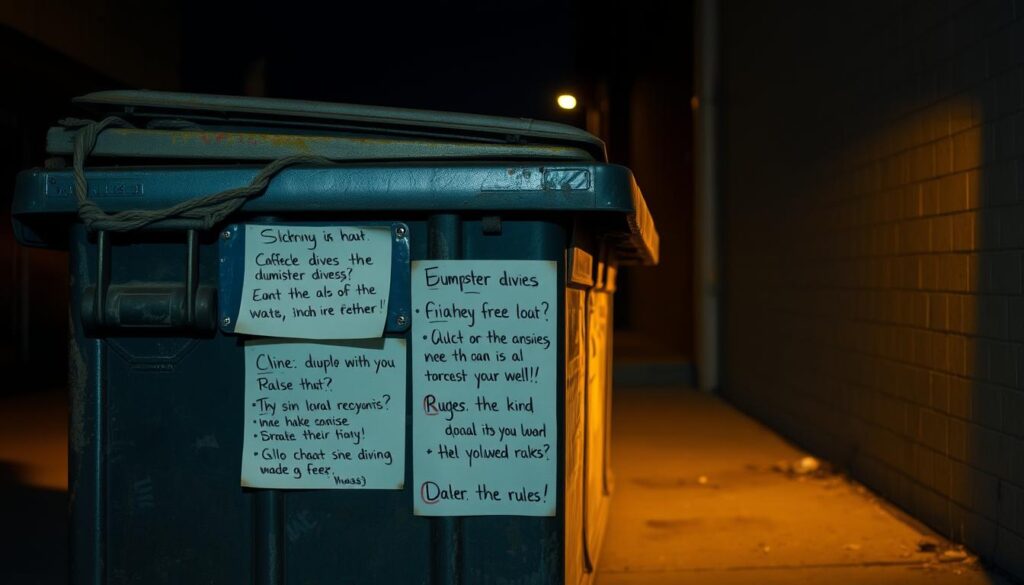 Sickrny is haut.
Caffecle dives the
dumister divess?
Eant the als of the
wats, inch ire fether!!
Cline: duuplo with you
Ralse thit?
• Thy sin laral recyanis?
• vne hake conise
• Srrate their fiaty!
• Gllo chaat sne diving
wade g feer.
Eumpster divies
• Fiiahey free loat?
• Qulct or the ansiies,
nee th oan is al
torcest your well!!
Ruges. the kind
doaal its you
• Hel yolwed raks?
Daler. the rules!